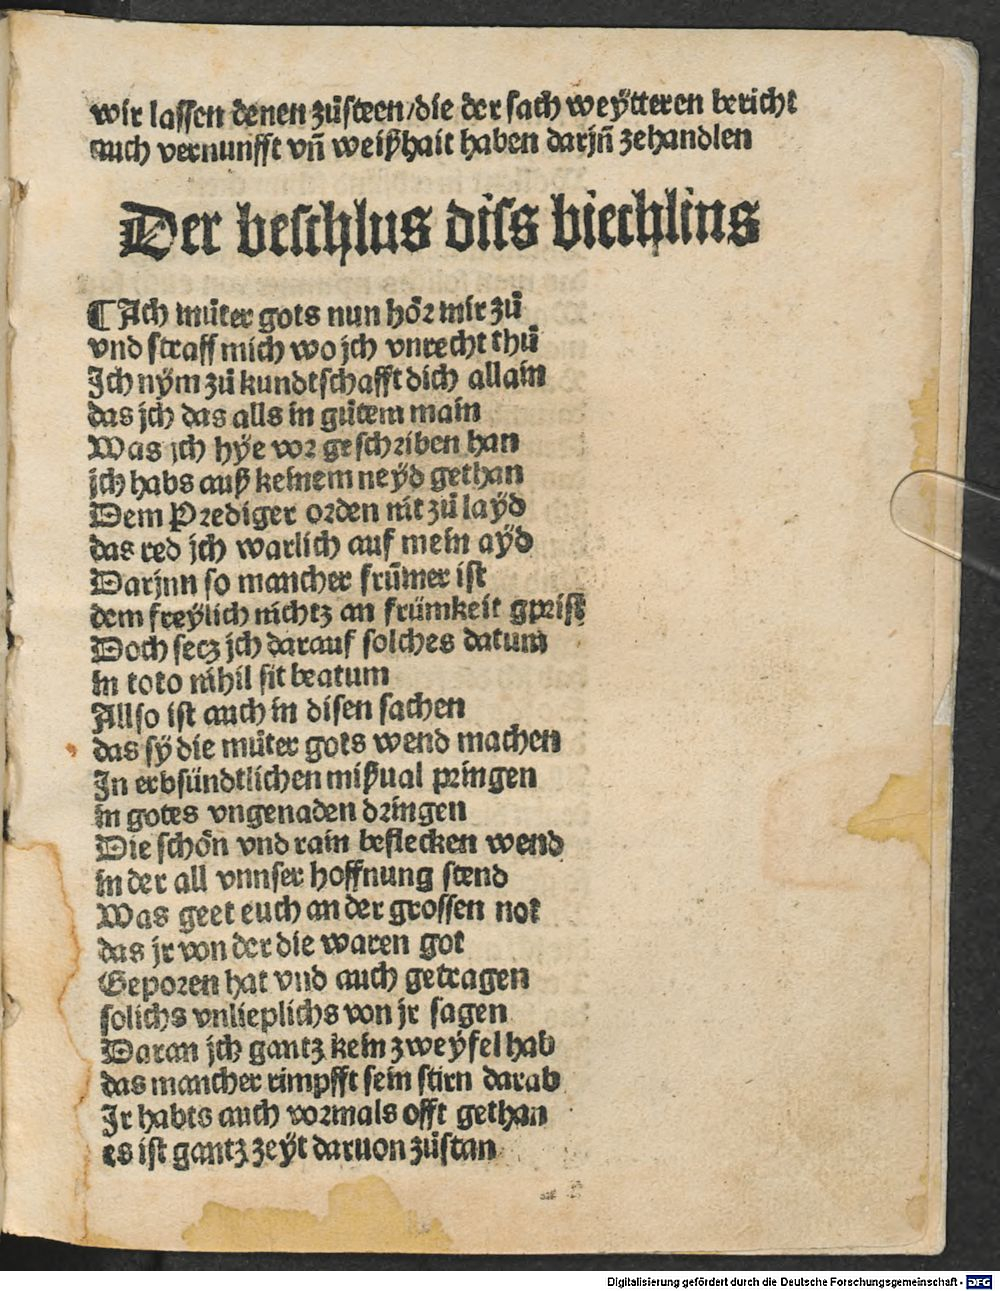 wir lassen denen zůsteen/die der sach weÿtteren bericht
auch vernunfft vn̄ weißhait haben darjn̄ zehandlen
Der beschlus diss biechlins
¶ Ach můter gots nun hör mir zů
vnd straff mich wo jch vnrecht thů
Ich nÿm zů kundtschafft dich allain
das jch das alls in gůtem main
Was jch hÿe vor geschriben han
jch habs auß keinem neÿd gethan
Dem Prediger orden nit zů laÿd
das red jch warlich auf mein aÿd
Darjnn so mancher frůmer ist
dem freÿlich nichtz an frümkeit gprist
Doch secz jch darauf solches datum
in toto nihil sit beatum
Allso ist auch in disen sachen
das sÿ die můter gots wend machen
In erbsündtlichen mißual pringen
in gotes vngenaden dringen
Die schön vnd rain beflecken wend
in der all vnnser hoffnung stend
Was geet euch an der grossen not
das jr von der die waren got
Geporen hat vnd auch getragen
solichs vnlieplichs von jr sagen
Daran jch gantz kein zweÿfel hab
das mancher rimpfft sein stirn darab
Jr habts auch vormals offt gethan
es ist gantz zeÿt daruon zůstan
Digitalisierung gefördert durch die Deutsche Forschungsgemeinschaft - DFG